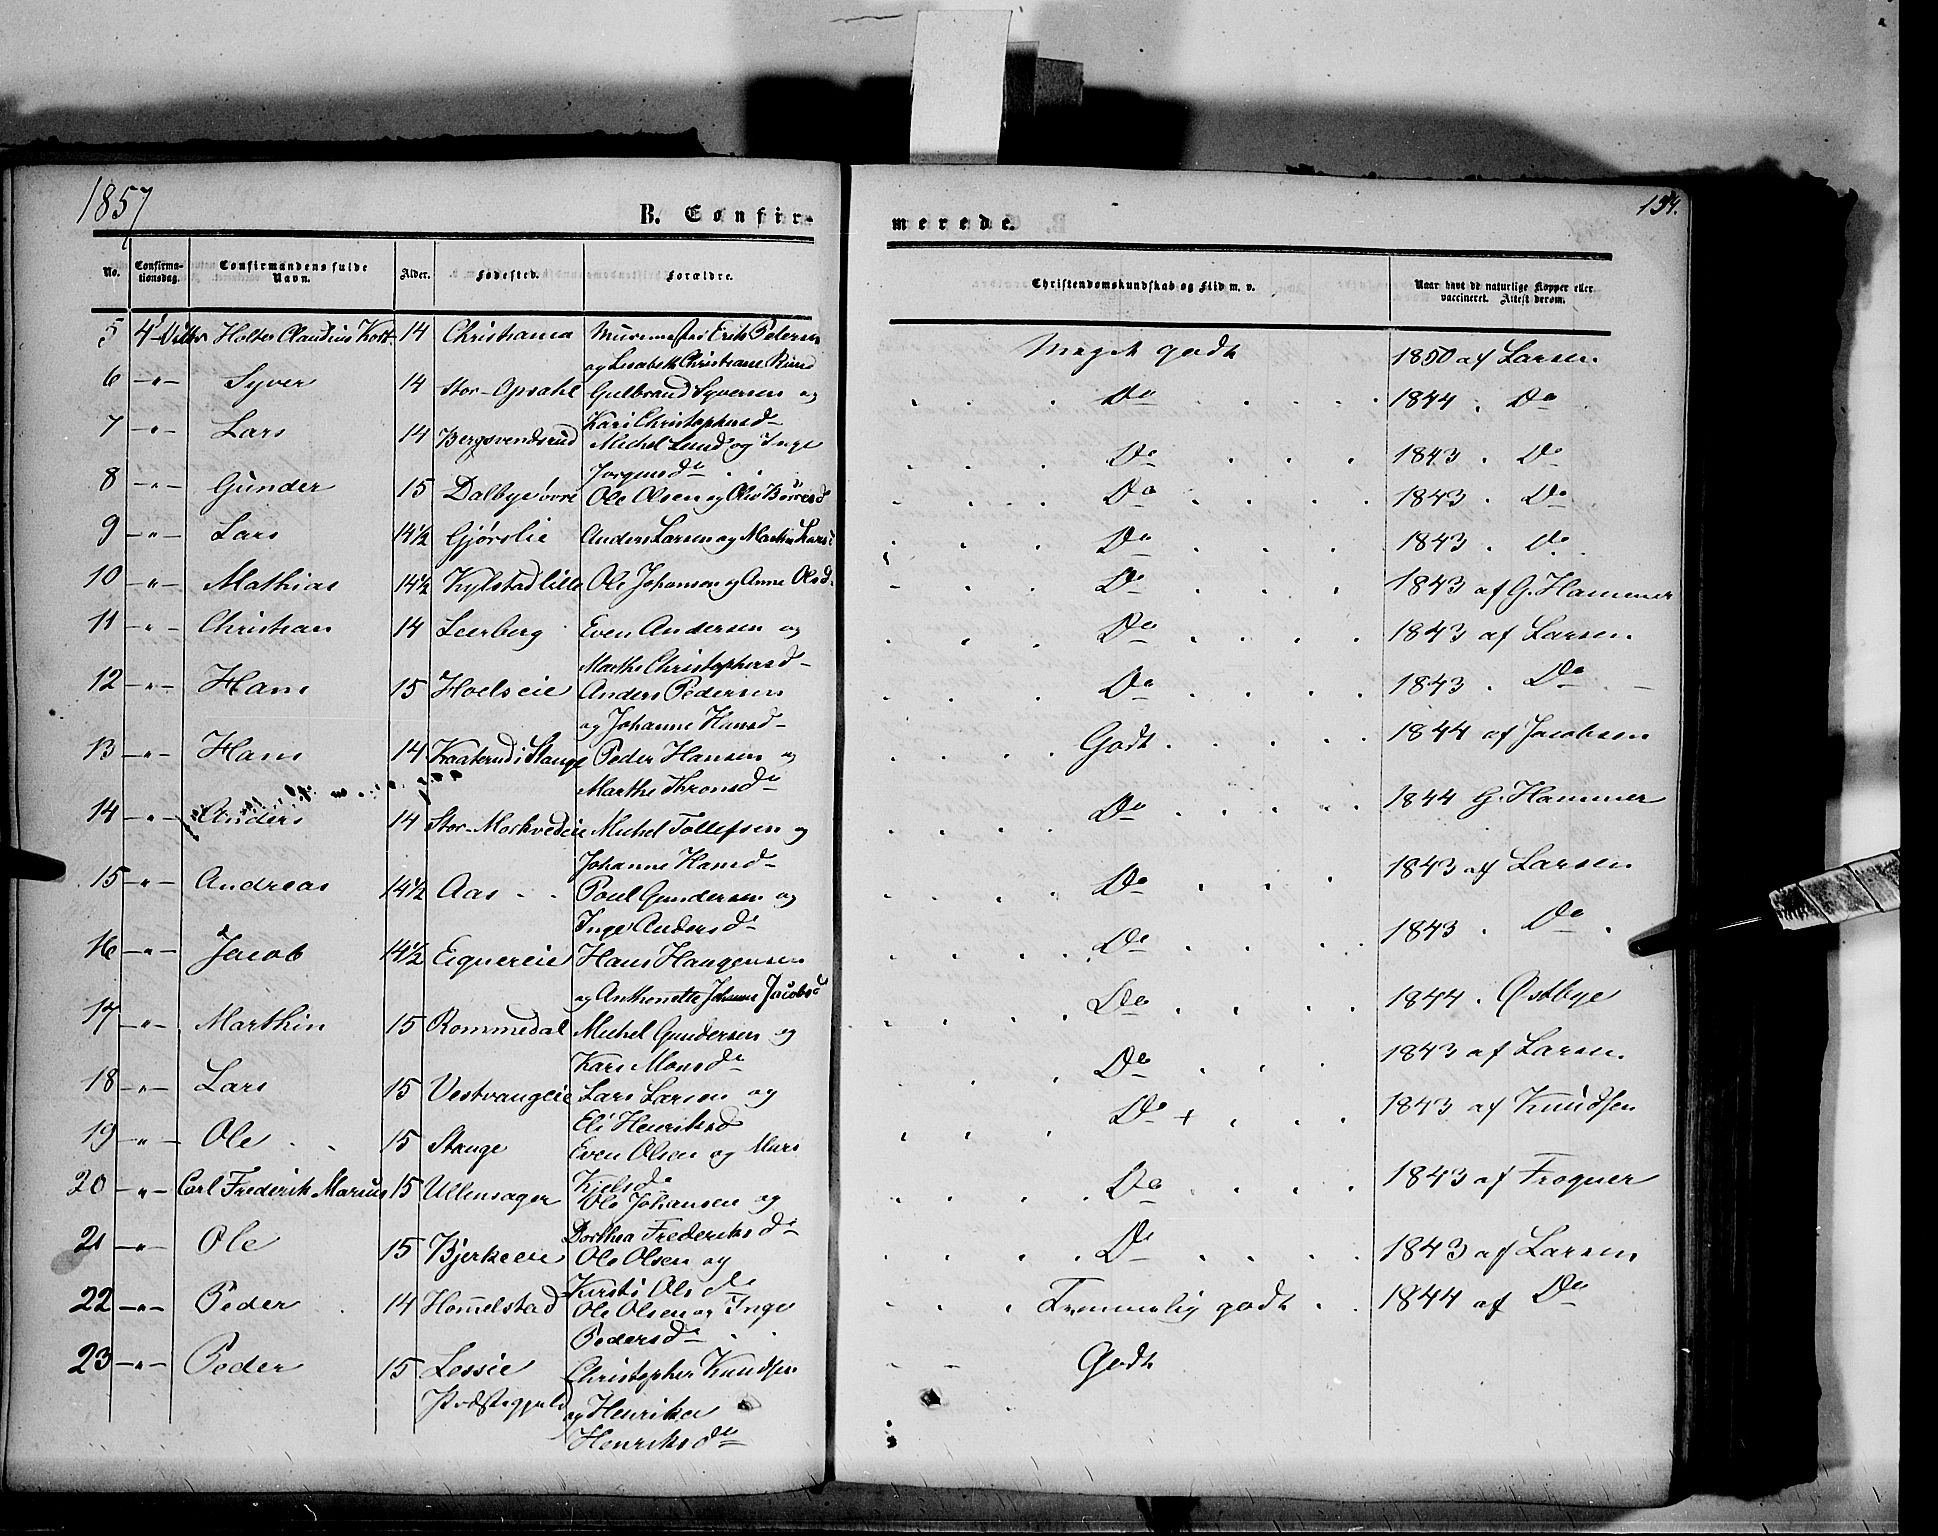 1857
B. Confir-
merede.
134.
No. Confirma-tionsdag. Confirmandens fulde Navn. Alder. Fødested. Forældre. Christendomskundskab og Flid m. v. Naar havt de naturlige Kopper eller vaccineret. Attest derom.
5 4 Holter Claudius 14 Christiania Erik Pedersen Meget godt 1850 af Larsen
og Lisabeth Christiane
6 -"- Syver 14 Stor-Opsahl Gulbrand Syversen og Do 1844 . Do
Kari Christophersd-
7 -"- Lars 14 Bergsvendsrud Michel Lund og Inge Do 1843 . Do
Jorgensd-
8 -"- Gunder 15 Dalbye øvre Ole Olsen og Do 1843 . Do
9 -"- Lars 14½ Gjørslie Anders Larsen og Do 1843 . Do
10 -"- Mathias 14½ Kylstad lille Ole Johansen og Anne Olsd. Do 1843 af G. Hammer
11 -"- Christian 14 Leerberg Even Andersen og Do 1843 af Larsen.
Marthe Christophersd-
12 -"- Hans 15 Hoelseie Anders Pedersen Do 1843 . Do
og Johanne Hansd-
13 -"- Hans 14 Kaaterud i Stange Peder Hansen og Godt 1844 af Jacobsen
Marthe Thronsd-
14 -"- Anders 14 Michel Tollefsen og Do 1844 G. Hammer
Johanne Hansd-
15 -"- Andreas 14½ Aas Poul Gundersen og Do 1843 af Larsen
Inger Andersd-
16 -"- Jacob 14½ Hans Haugensen Do 1843 . Do
og Anthonette Johanne Jacobsd
17 -"- Marthin 15 Rommedal Michel Gundersen og Do 1844 . Østbye
Kari Monsd-
18 -"- Lars 15 Vestvangeie Lars Larsen og Do 1843 af Larsen.
Eli Henriksd
19 -"- Ole 15 Stange Even Olsen og Mari Do + 1843 af Knudsen
Kjelsd-
20 -"- Carl Frederik Marius 15 Ullensager Ole Johansen og Do 1843 af Frogner
Dorthea Frederiksd-
21 -"- Ole 15 Bjerkeeie Ole Olsen og Do 1843 af Larsen
Kirsti Olsd-
22 -"- Peder 14 Hommelstad Ole Olsen og Inge Temmelig godt 1844 af Do
Pedersd-
23 -"- Peder 15 Lessie Christopher Knudsen Godt
Præstegjeld og Henrikka
Henriksd-